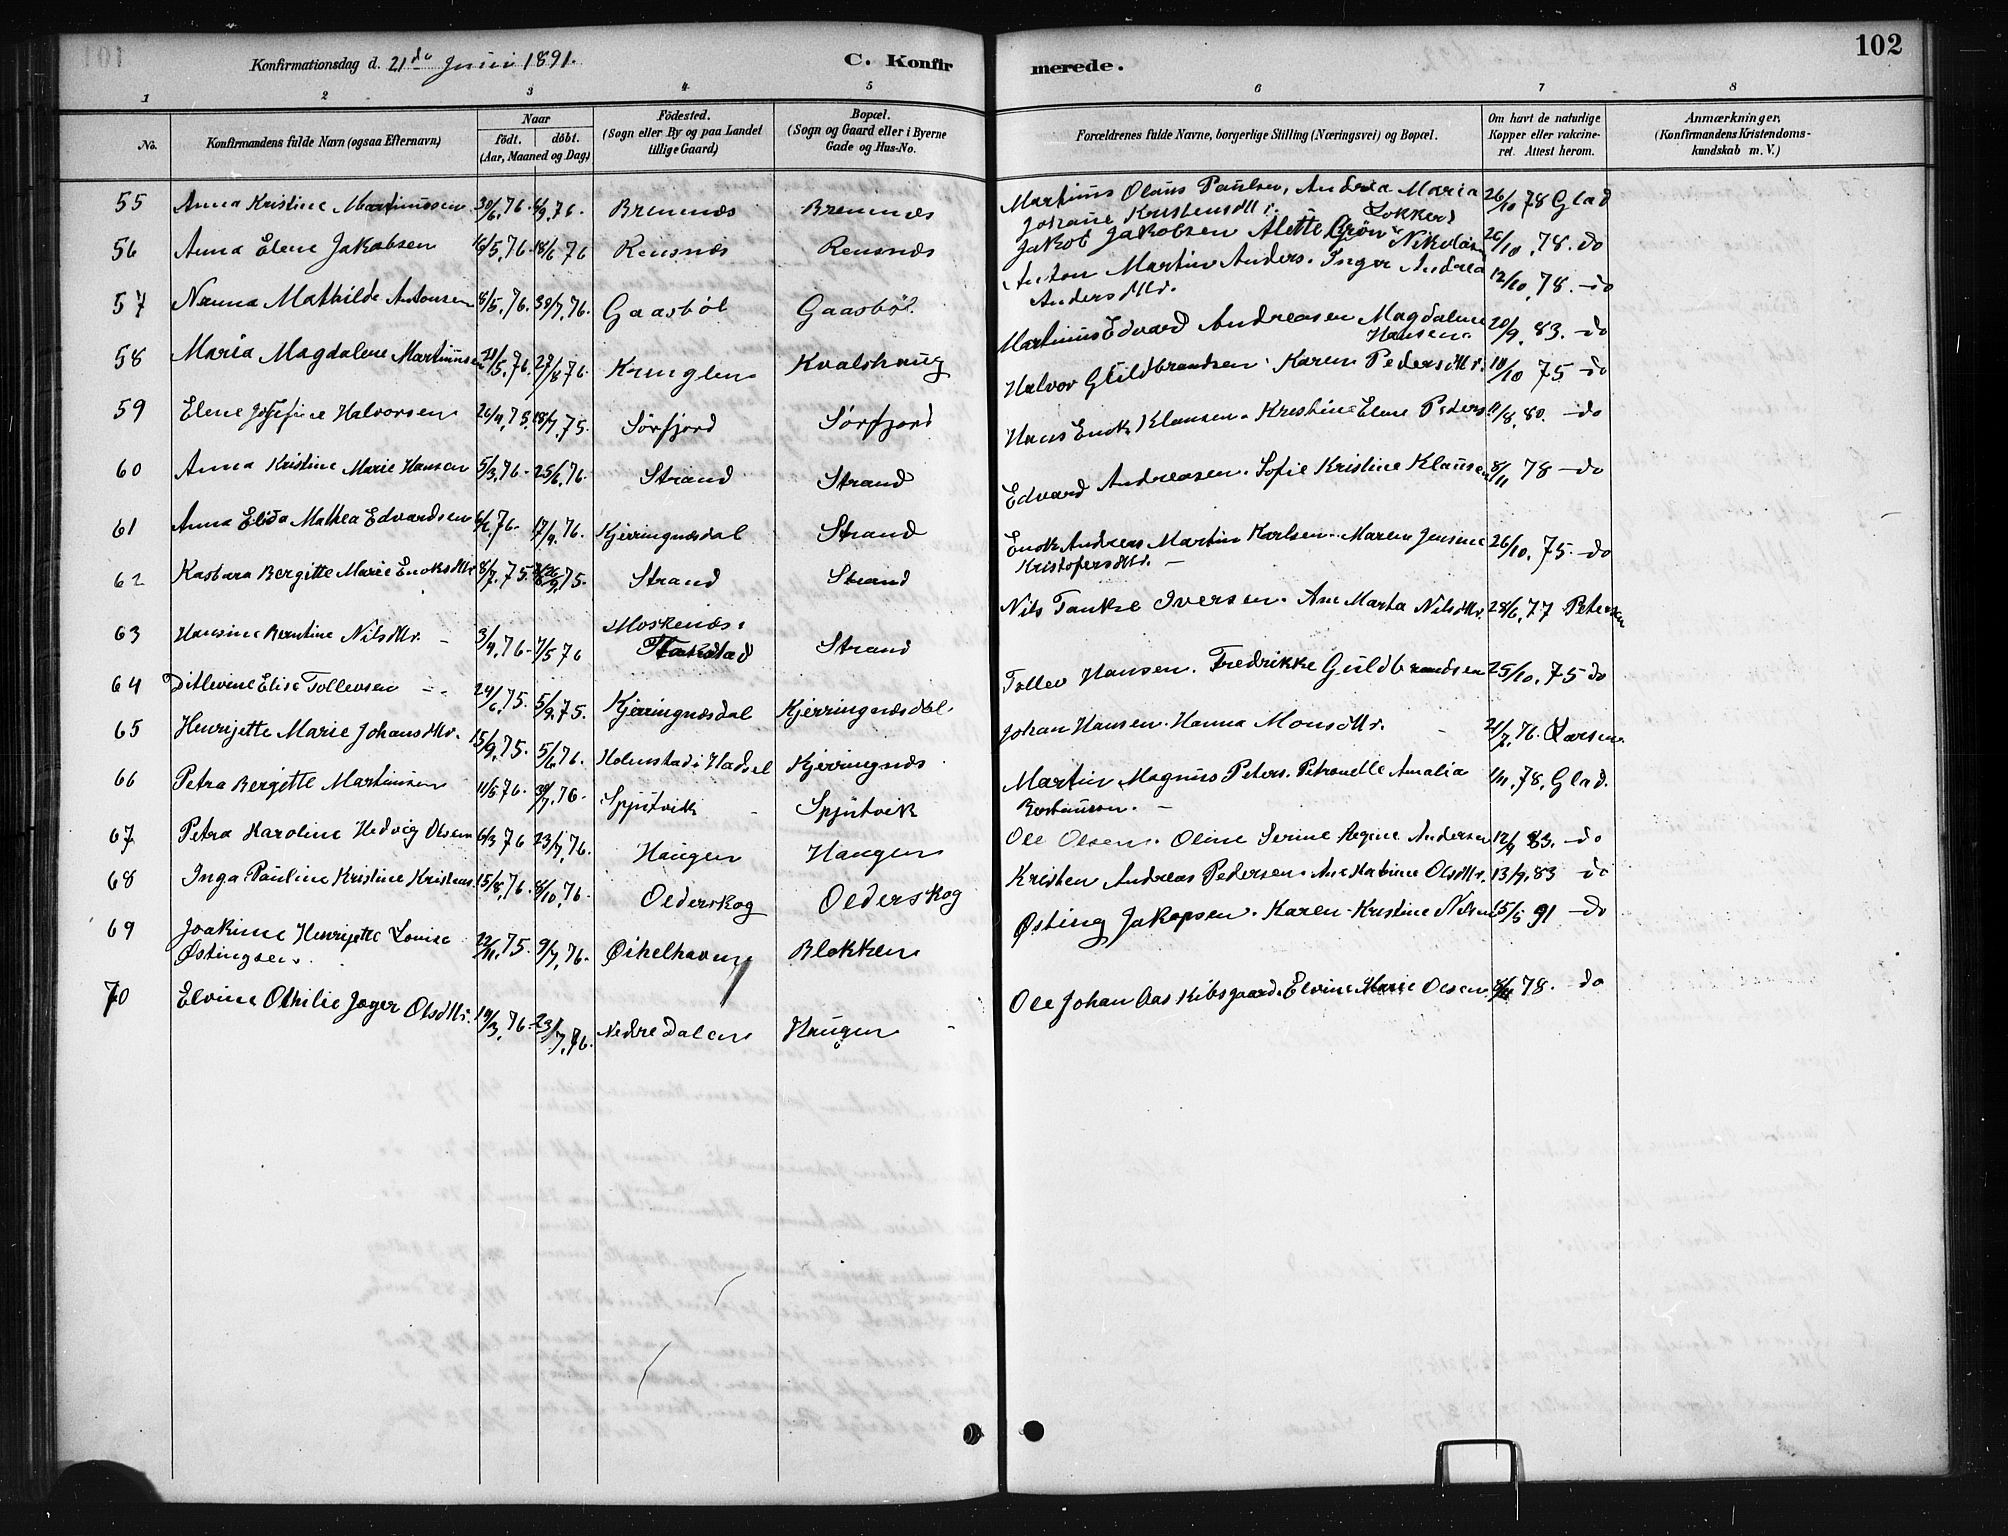 Konfirmationsdag d. 21de Juni 1891.
C. Konfirmerede.
102
1 2 3 4 5 6 7 8
No.
Konfirmandens fulde Navn (ogsaa Efternavn)
Naar
födt. döbt.
(Aar, Maaned og Dag)
Födested.
(Sogn eller By og paa Landet
tillige Gaard)
Bopæl.
(Sogn og Gaard eller i Byerne
Gade og Hus-No.
Forældrenes fulde Navne, borgerlige Stilling (Næringsvei) og Bopæl.
Om havt de naturlige
Kopper eller vakcine-
ret. Attest herom.
Anmærkninger.
(Konfirmandens Kristendoms-
kundskab m. V.)
55 Anna Kristine Martinussen 30/6, 76. 76. Bremnæs Bremnæs Martinus Olaus Paulsen, Andrea Maria 26/10 78 Glad
Johane Kristensdtr. Lokkers
56 Anna Elene Jakobsen 16/5, 76. 18/6 76 Rensnæs Rensnæs Jakob Jakobsen Alette Grön Nikolais 26/10, 78. do
57 Nanna Mathilde Antonsen 8/5, 76. 30/7, 76. Gaasböl Gaasböl Anton Martin Anders. Inger Andrea 12/10, 78. do
Andersdtr.
58 Maria Magdalene Martinusen 21/5, 76. 27/8 76 Krunglen Kvalshaug Martinus Edvard Andreasen Magdalene 20/9, 83. do
Hansen.
59 Elene Josefine Halvorsen 26/4, 75. 18/7, 75. Sörfjord Sörfjord Halvor Guldbrandsen. Karen Pedersdtr. 10/10 75 do
60 Anna Kristine Marie Hansen 5/3, 76. 25/6, 76. Strand Strand Hans Enok Klausen. Kristine Elene Peders. 11/8, 80. do
61 Anna Elida Mathea Edvardsen 76. 17/9, 76. Kjerringnæsdal Strand Edvard Andreasen. Sofie Kristine Klausen 8/11 78 do
62 Kasbara Bergitte Marie Enoksdtr 8/7, 75. 75. Strand Strand Enok Andreas Martin Karlsen. Maren Jensine 26/10, 75. do
Kristofersdtr.
63 Hansine Berntine Nilsdtr. 3/4, 76. 7/5 76 Moskenæs. Strand Nils Tanke Iversen. Ane Marta Nilsdtr. 28/6, 77 Petersen
64 Ditlevine Elise Tollevsen 24/6, 75. 5/9, 75. Kjerringnæsdal Kjerringnæsdal Tollev Hansen. Fredrikke Guldbrandsen 25/10, 75 do
65 Henrijette Marie Johansdtr. 15/9, 75. 5/6 76. Holmstad i Hadsel Kjerringnæs Johan Hansen. Hanna Monsdtr. 21/7, 76. Larsen.
66 Petra Bergitte Martinsen 11/5 76. 30/7, 76. Spjutvik Spjutvik Martin Magnus Peters. Petronelle Amalia 1/11, 78, Glad.
67 Petra Karoline Hedvig Olsen 6/3 76 23/7, 76. Haugen Haugen Ole Olsen. Oline Serine Regine Andersen 83. do
68 Inga Pauline Kristine Kristens. 15/8, 76. 8/10, 76. Olderskog Olderskog Kristen Andreas Pedersen. Ane Katrine Olsdtr. 13/9, 83 do
69 Joakime Henrijette Louise 22/11, 75. 9/7, 76. Öikelhavn Blokken Östing Jakopsen. Karen Kristine Nilsen 15/5 91 do
Östingsen.
70 Elvine Othilie Jæger Olsdtr. 19/3, 76. 23/7, 76. Nedre Dalen Haugen Ole Johan Aas Kibsgaard. Elvine Marie Olsen 78. do